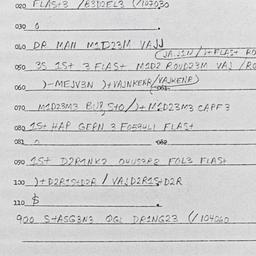 020 FLAS+3 /B3DDEL3 (/107030
030 0 .
040 DR MAN M1D23M VAJJ
(JA.11N/1+FLAS+ RO
050 3S 1S+ 3 FLAS+ M1D2 ROUD23M VAJ /RO
060 )-MEJV3N )+VAJNKENR/VAJKENR)
070 M1D23M3 BUR, S+O/)+M1D23M3 CAPF3
080 1S+ HAP GERN 3 FORB4LI FLAS+
081 0 082
090 1S+ D2R1NK2 OUUS3R2 FOL3 FLAS+
100 )+D2R1S+D2R / VAJD2R1S+D2R
110 $ .
900 S+ASG3N3 OGL DR1NG23 (/104060